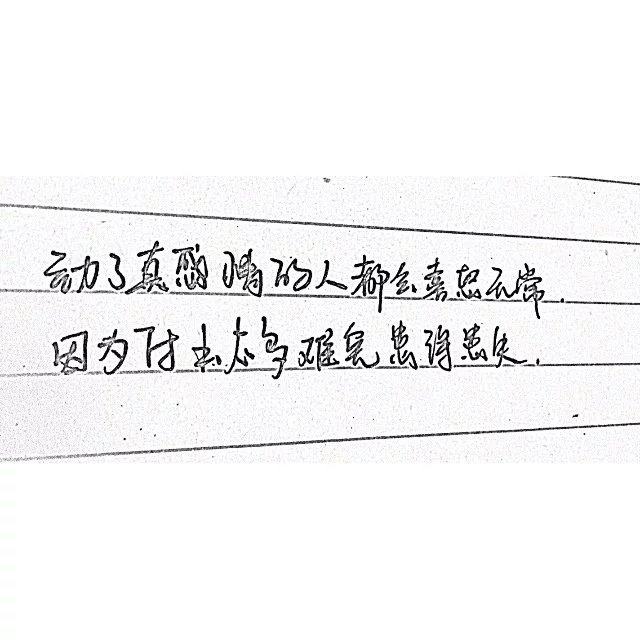 动了真感情的人都会喜怒无常.
因为付出太多难免患得患失.